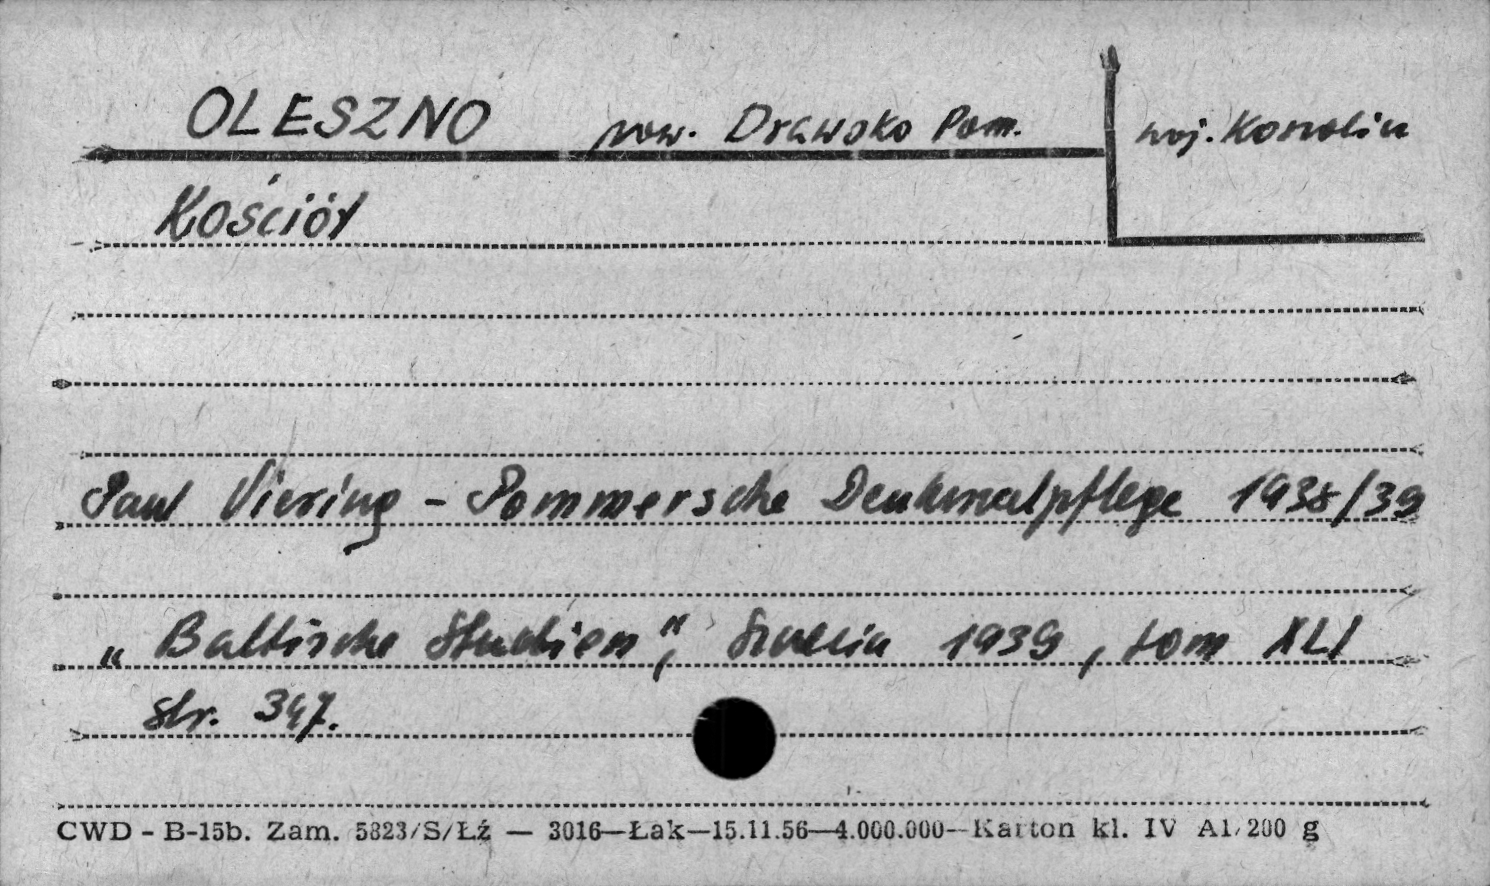 OLESZNO pow. Drawsko Pom. woj. Koszalin
Kościół
Paul Viering - Pommersche Denkmalpflege 1938/39
„Baltische Studien", Szczecin 1939, tom XLI
str. 347.
CWD - B-15b. Zam. 5823/S/Łź — 3016—Łak—15.11.56—4.000.000—Karton kl. IV A1/200 g